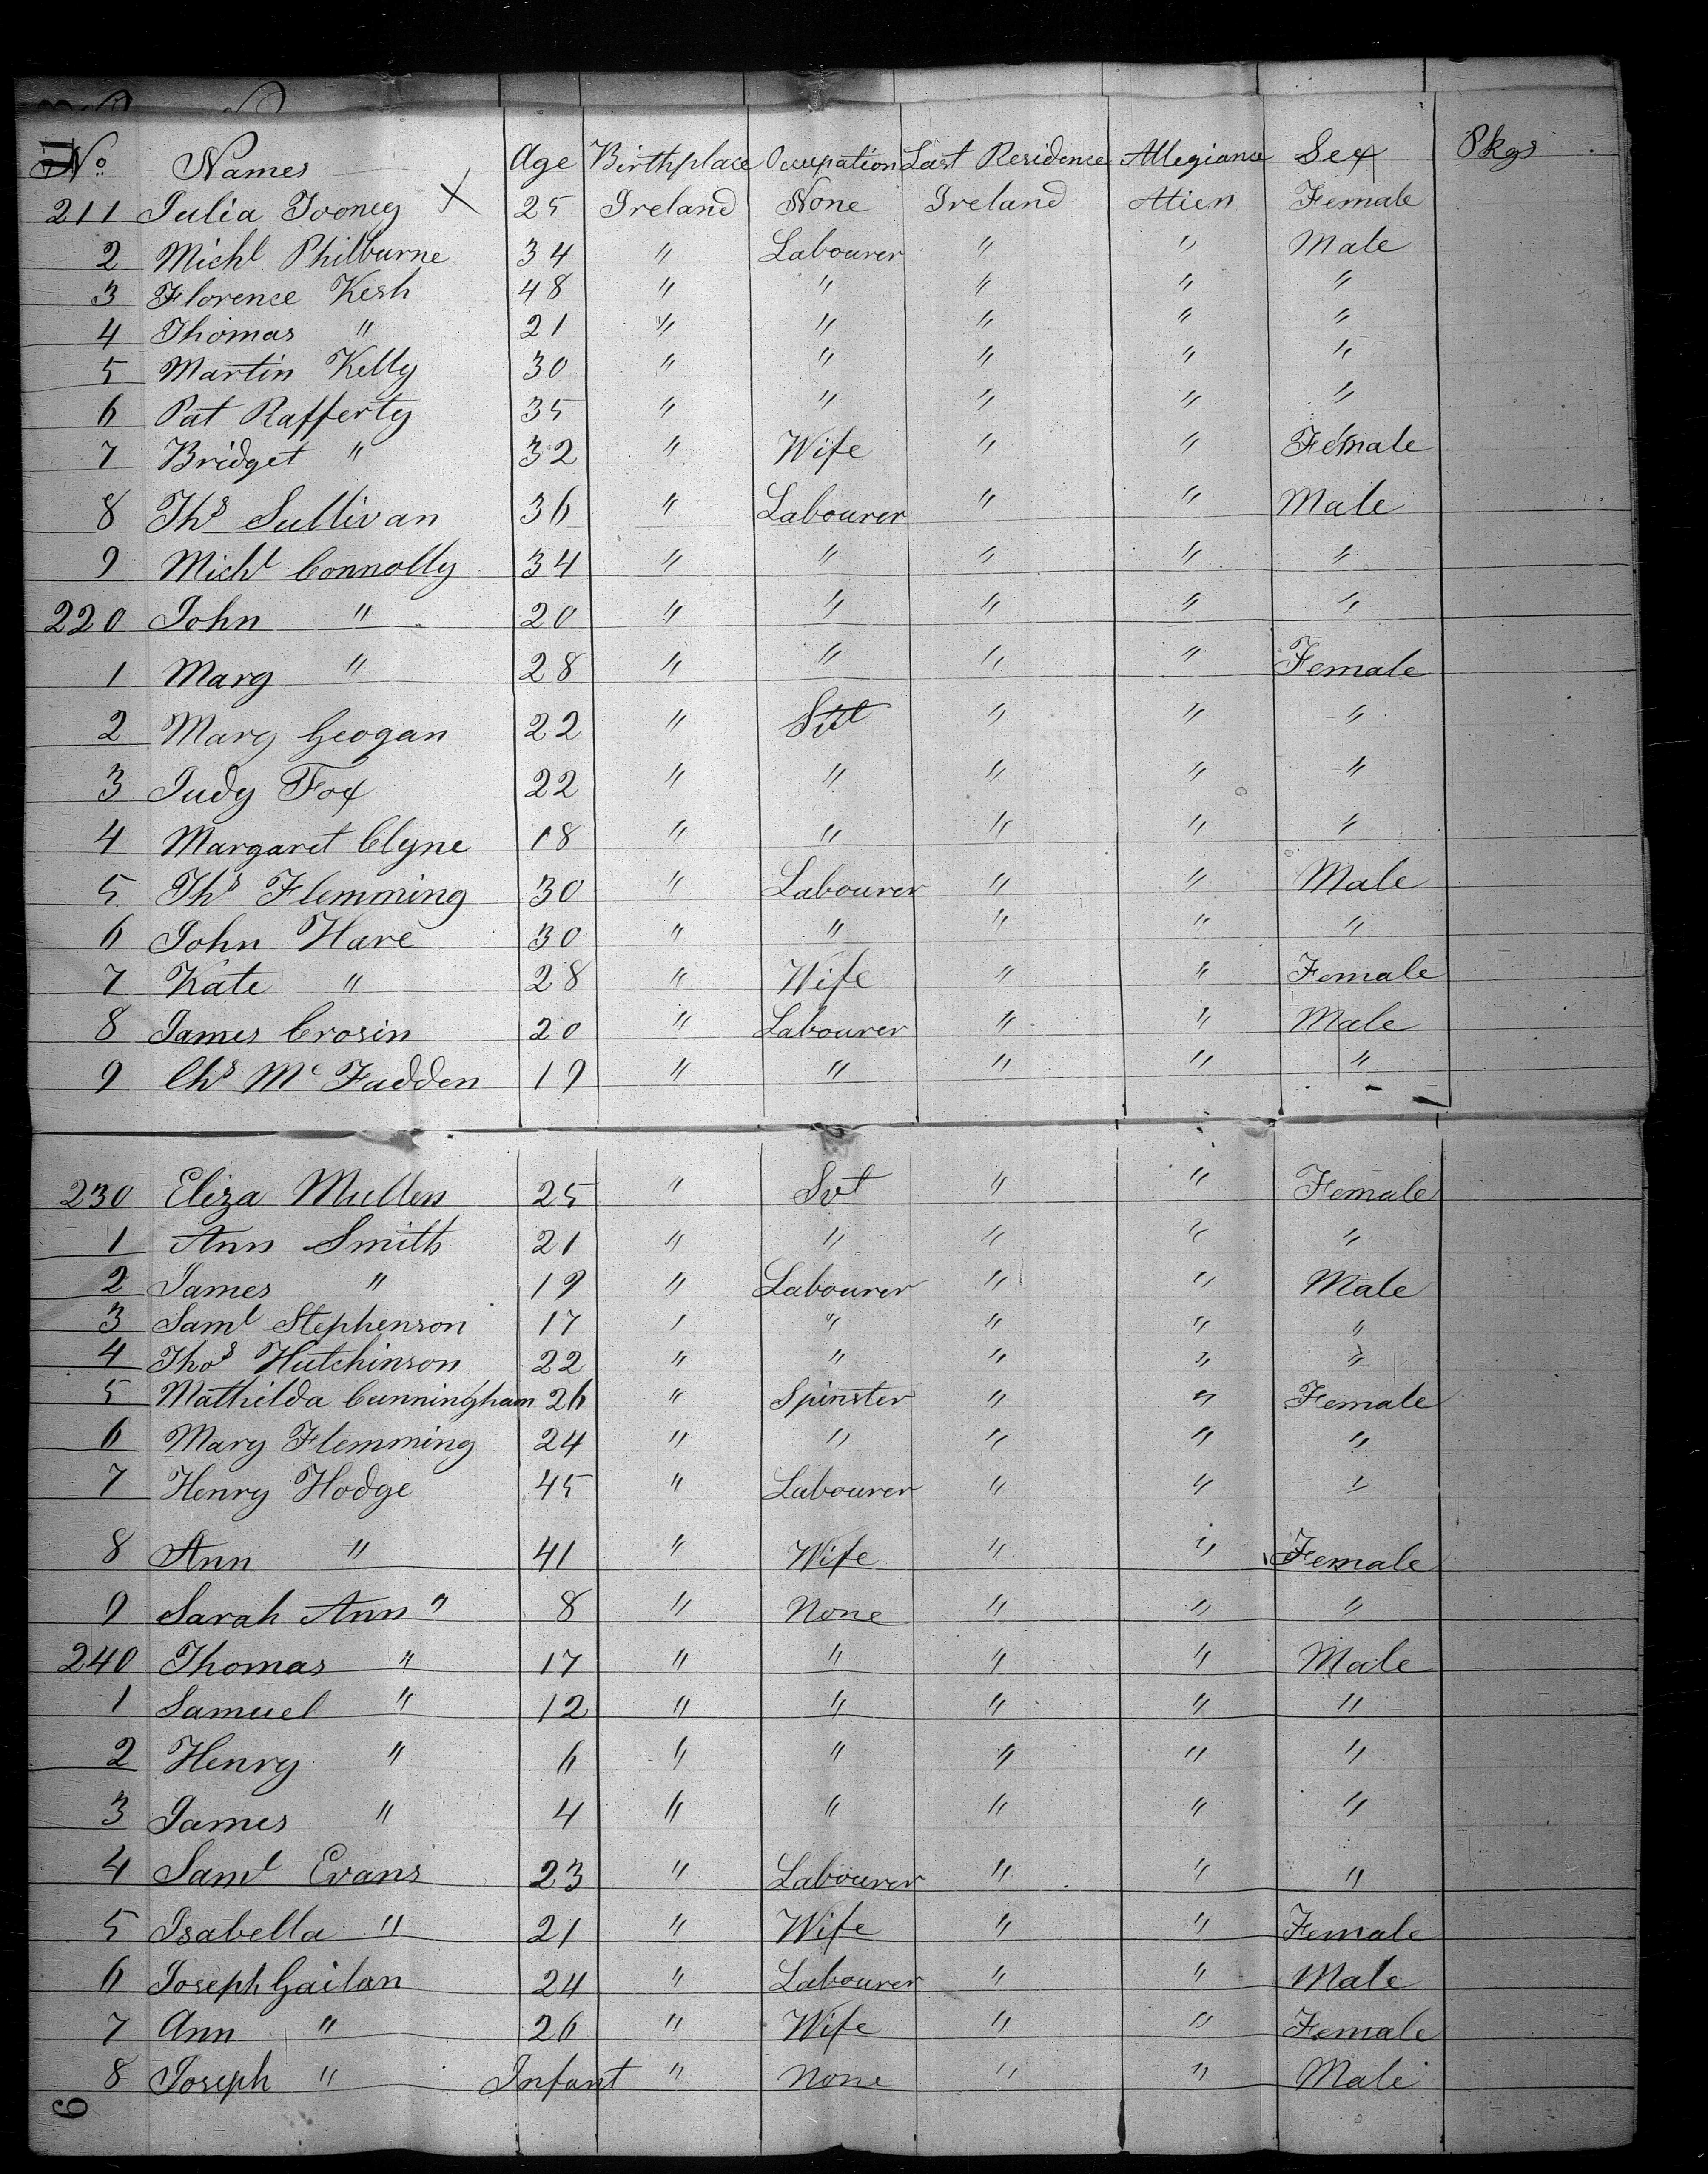 No. Names Age Birthplace Occupation Last Residence Allegiance Sex Pkgs
211 Julia Tooney X 25 Ireland None Ireland Alien Female
2 Michl Philburne 34 " Labourer " " Male
3 Florence Kesh 48 " " " " "
4 Thomas " 21 " " " " "
5 Martin Kelly 30 " " " " "
6 Pat Rafferty 35 " " " " "
7 Bridget " 32 " Wife " " Female
8 Ths Sullivan 36 " Labourer " " Male
9 Michl Connolly 34 " " " " "
220 John " 20 " " " " "
1 Marg " 28 " " " " Female
2 Marg Geogan 22 " Svt " " "
3 Judy Fox 22 " " " " "
4 Margaret Clyne 18 " " " " "
5 Ths Flemming 30 " Labourer " " Male
6 John Hare 30 " " " " "
7 Kate " 28 " Wife " " Female
8 James Crosin 20 " Labourer " " Male
9 Chs Mc Fadden 19 " " " " "
230 Eliza Mullen 25 " Svt " " Female
1 Ann Smith 21 " " " " "
2 James " 19 " Labourer " " Male
3 Saml Stephenson 17 " " " " "
4 Thos Hutchinson 22 " " " " "
5 Mathilda Cunningham 26 " Spinster " " Female
6 Mary Flemming 24 " " " " "
7 Henry Hodge 45 " Labourer " " "
8 Ann " 41 " Wife " " Female
9 Sarah Ann " 8 " None " " "
240 Thomas " 17 " " " " Male
1 Samuel " 12 " " " " "
2 Henry " 6 " " " " "
3 James " 4 " " " " "
4 Saml Evans 23 " Labourer " " "
5 Isabella " 21 " Wife " " Female
6 Joseph Gailan 24 " Labourer " " Male
7 Ann " 26 " Wife " " Female
8 Joseph " Infant " None " " Male
6